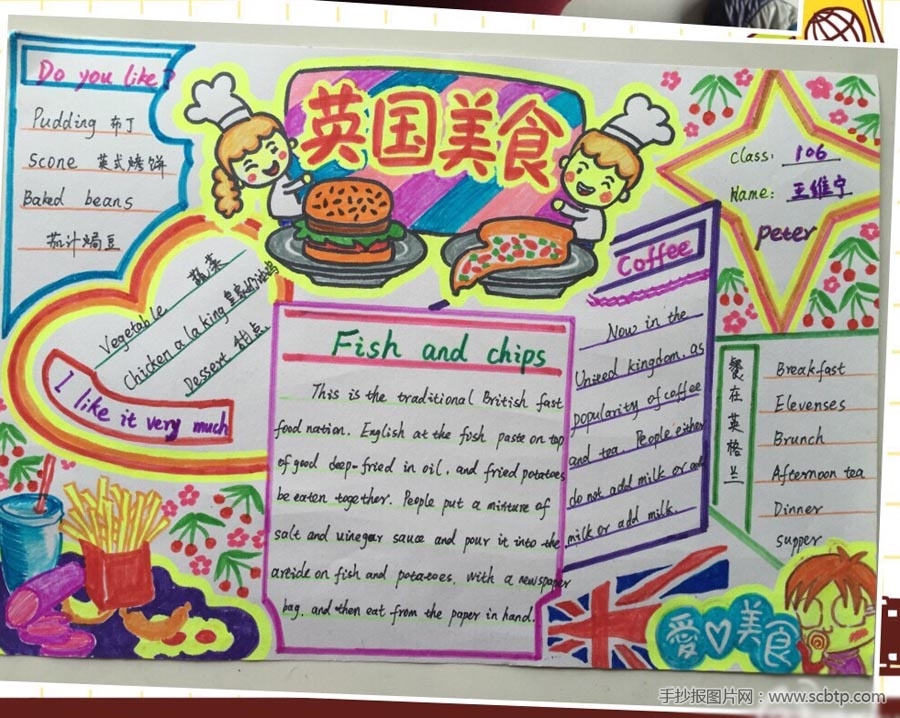 Do you like?
Pudding 布丁
Scone 英式烤饼
Baked beans
茄汁焗豆
英国美食
Class: 106
Name: 王维宁
peter
Vegetable 蔬菜
Chicken a la king 皇家奶油鸡
Dessert 甜点
I like it very much
Fish and chips
This is the traditional British fast
food nation. English at the fish paste on top
of good deep-fried in oil, and fried potatoes
be eaten together. People put a mixture of
salt and vinegar sauce and pour it into the
article on fish and potatoes, with a newspaper
bag, and then eat from the paper in hand.
Coffee
Now in the
United kingdom, as
popularity of coffee
and tea. People either
do not add milk or add
milk or add milk.
餐在英格兰
Breakfast
Elevenses
Brunch
Afternoon tea
Dinner
supper
爱美食
手抄报图片网:www.scbtp.com